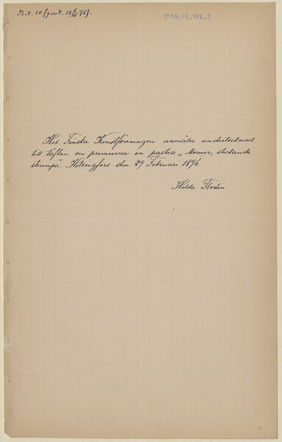 Bil. 10 (prot. 12/3 96).
Hos Finska Konstföreningen anmäler undertecknad
till täflan om premierna en pastell „Mormor, stickande
strumpa”. Helsingfors den 29 Februari 1896
Hilda Flodin